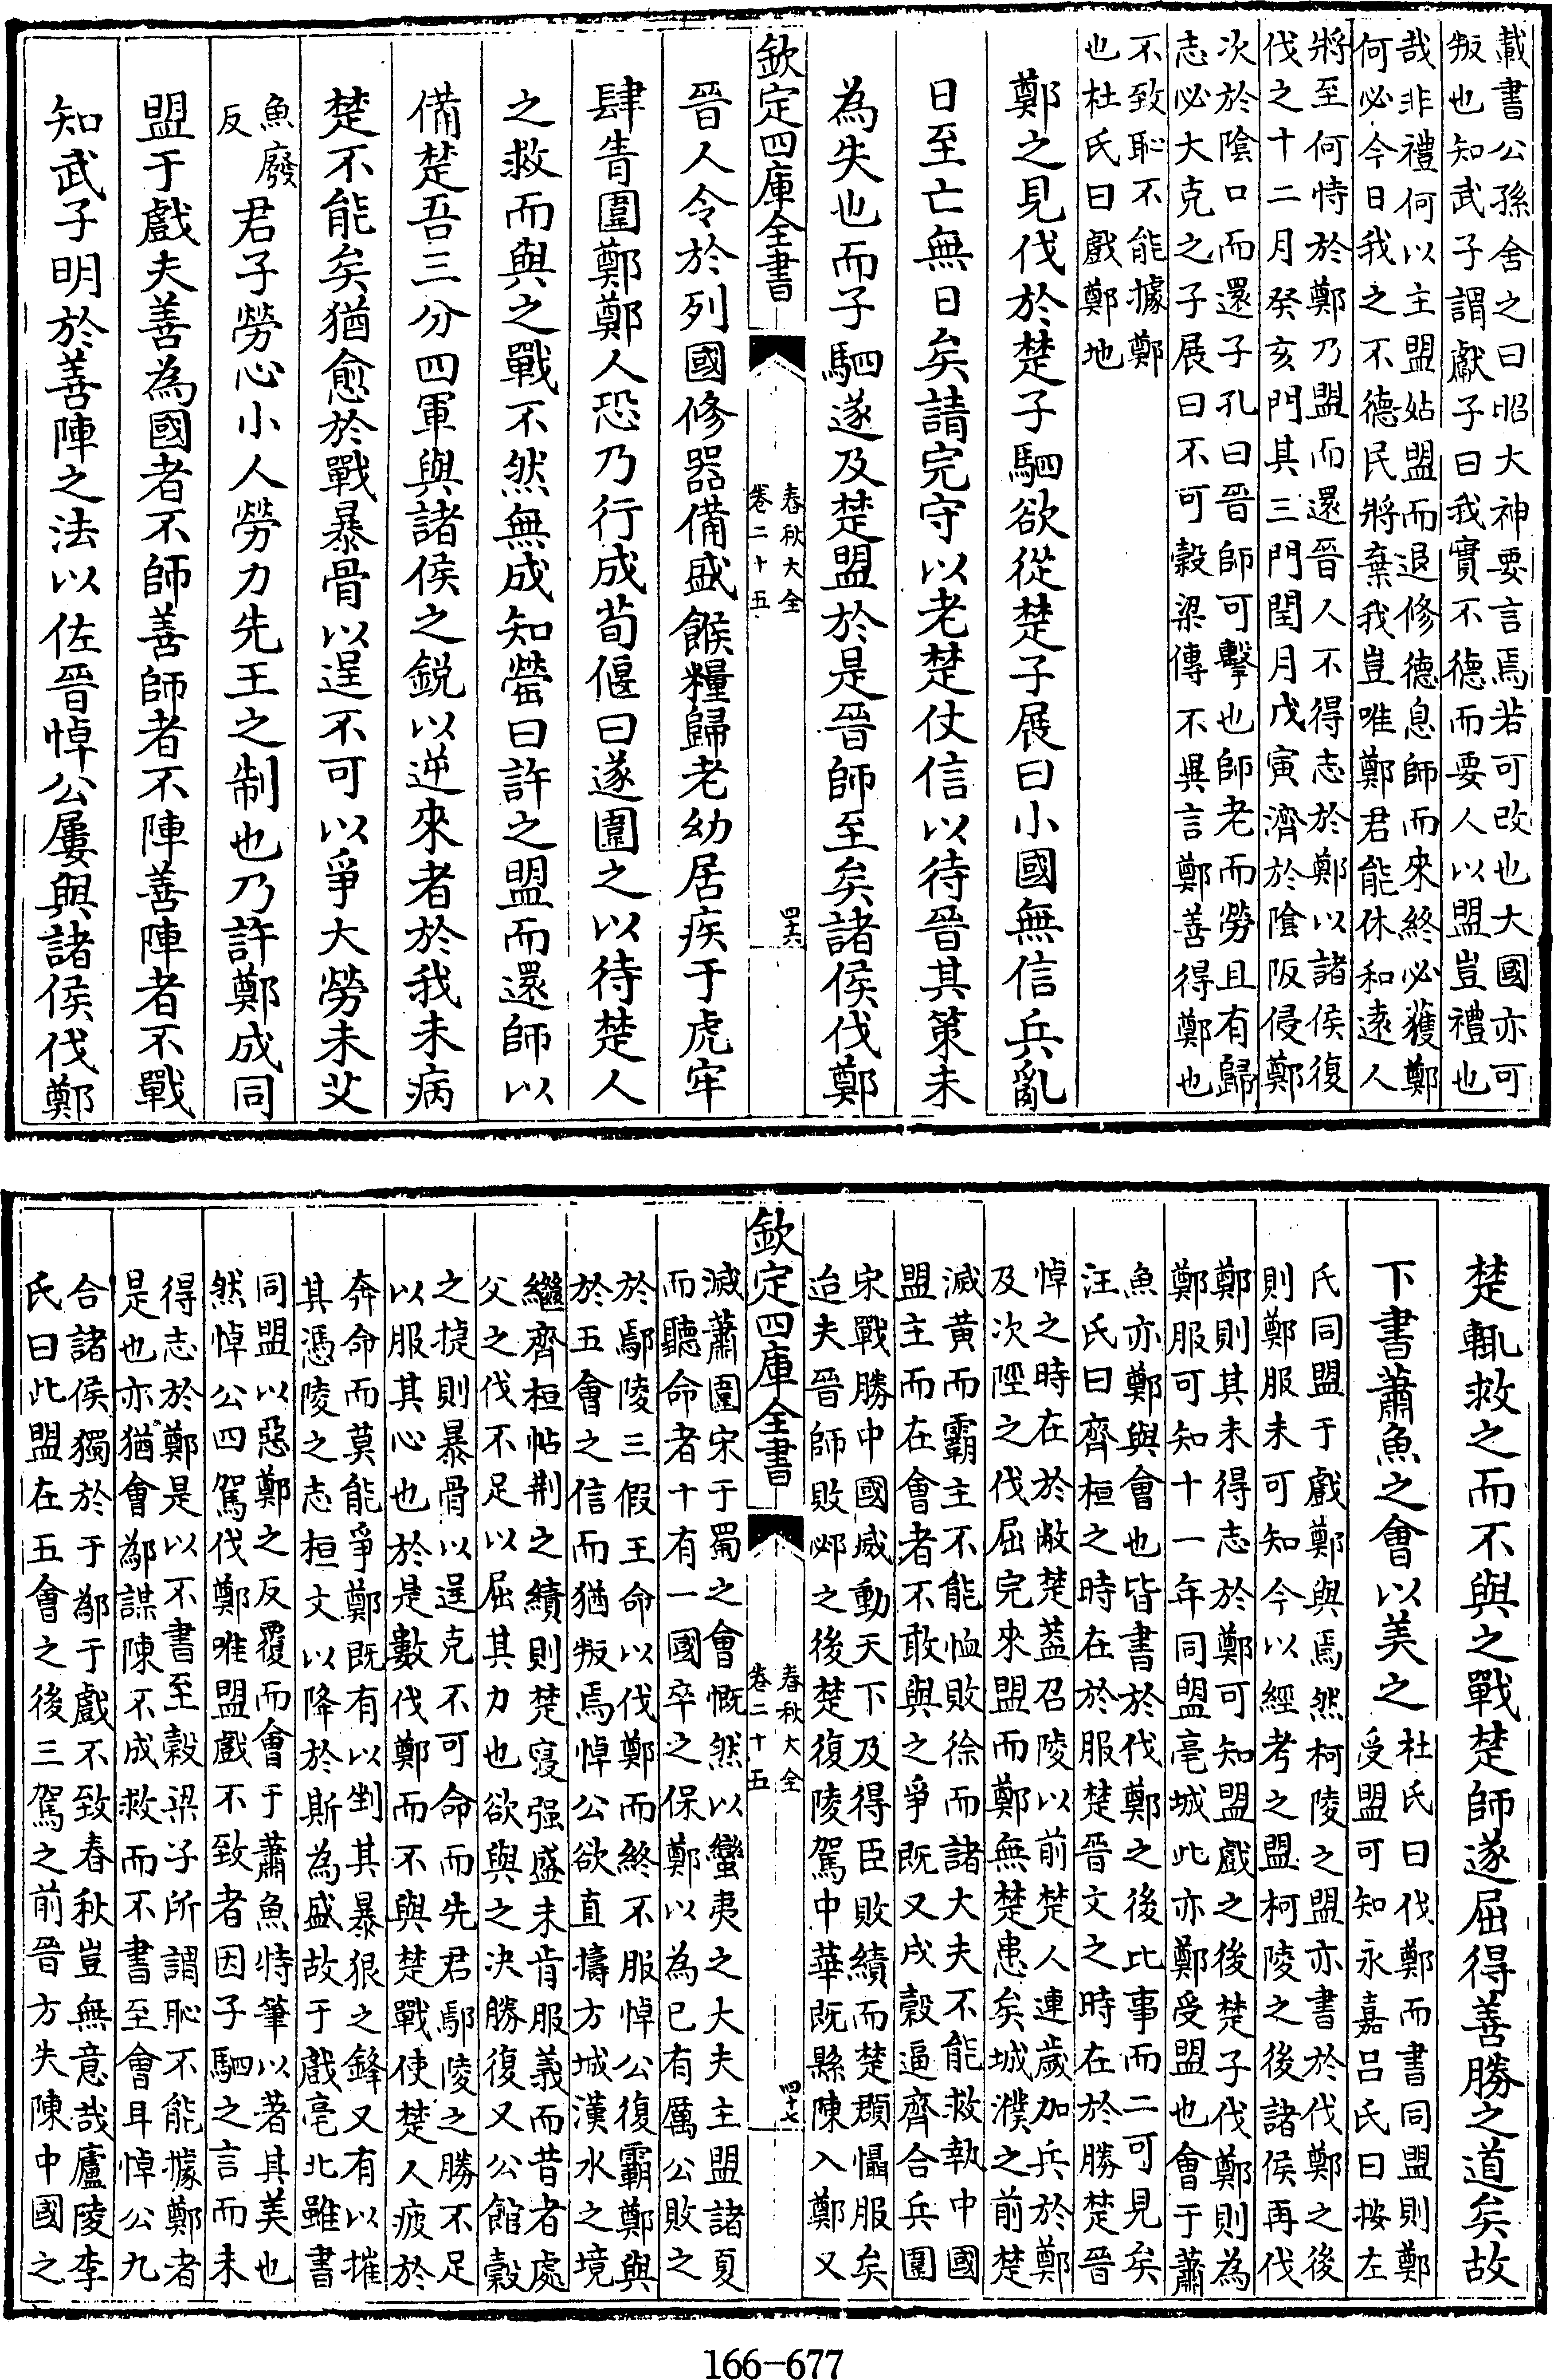 載書公孫舍之曰昭大神要言焉若可改也大國亦可
叛也知武子謂獻子曰我實不德而要人以盟豈禮也
哉非禮何以主盟姑盟而退修德息師而來終必獲鄭
何必今日我之不德民將棄我豈唯鄭君能休和遠人
將至何恃於鄭乃盟而還晉人不得志於鄭以諸侯復
伐之十二月癸亥門其三門閏月戊寅濟於陰阪侵鄭
次於陰口而還子孔曰晉師可擊也師老而勞且有歸
志必大克之子展曰不可穀梁傳不異言鄭善得鄭也
不致恥不能據鄭
也杜氏曰戲鄭地
鄭之見伐於楚子駟欲從楚子展曰小國無信兵亂
日至亡無日矣請完守以老楚仗信以待晉其策未
為失也而子駟遂及楚盟於是晉師至矣諸侯伐鄭
欽定四庫全書
春秋大全
卷二十五
四十六
晉人令於列國修器備盛餱糧歸老幼居疾于虎牢
肆眚圍鄭鄭人恐乃行成荀偃曰遂圍之以待楚人
之救而與之戰不然無成知罃曰許之盟而還師以
備楚吾三分四軍與諸侯之銳以逆來者於我未病
楚不能矣猶愈於戰暴骨以逞不可以爭大勞未艾
魚廢
反
君子勞心小人勞力先王之制也乃許鄭成同
盟于戲夫善為國者不師善師者不陣善陣者不戰
知武子明於善陣之法以佐晉悼公屢與諸侯伐鄭
楚輒救之而不與之戰楚師遂屈得善勝之道矣故
下書蕭魚之會以美之
杜氏曰伐鄭而書同盟則鄭
受盟可知永嘉呂氏曰按左
氏同盟于戲鄭與焉然柯陵之盟亦書於伐鄭之後
則鄭服未可知今以經考之盟柯陵之後諸侯再伐
鄭則其未得志於鄭可知盟戲之後楚子伐鄭則為
鄭服可知十一年同盟亳城此亦鄭受盟也會于蕭
魚亦鄭與會也皆書於伐鄭之後比事而二可見矣
汪氏曰齊桓之時在於服楚晉文之時在於勝楚晉
悼之時在於敝楚蓋召陵以前楚人連歲加兵於鄭
及次陘之伐屈完來盟而鄭無楚患矣城濮之前楚
滅黃而霸主不能恤敗徐而諸大夫不能救執中國
盟主而在會者不敢與之爭既又戍穀逼齊合兵圍
宋戰勝中國威動天下及得臣敗績而楚頵懾服矣
迨夫晉師敗邲之後楚復陵駕中華既縣陳入鄭又
欽定四庫全書
春秋大全
卷二十五
四十七
滅蕭圍宋于蜀之會慨然以蠻夷之大夫主盟諸夏
而聽命者十有一國卒之保鄭以為已有厲公敗之
於鄢陵三假王命以伐鄭而終不服悼公復霸鄭與
於五會之信而猶叛焉悼公欲直擣方城漢水之境
繼齊桓帖荆之績則楚寖强盛未肯服義而昔者處
父之伐不足以屈其力也欲與之決勝復文公館穀
之捷則暴骨以逞克不可命而先君鄢陵之勝不足
以服其心也於是數伐鄭而不與楚戰使楚人疲於
奔命而莫能爭鄭既有以剉其暴狠之鋒又有以摧
其憑陵之志桓文以降於斯為盛故于戲亳北雖書
同盟以惡鄭之反覆而會于蕭魚特筆以著其美也
然悼公四駕伐鄭唯盟戲不致者因子駟之言而未
得志於鄭是以不書至穀梁子所謂恥不能據鄭者
是也亦猶會鄬謀陳不成救而不書至會耳悼公九
合諸侯獨於于鄬于戲不致春秋豈無意哉廬陵李
氏曰此盟在五會之後三駕之前晉方失陳中國之
166-677